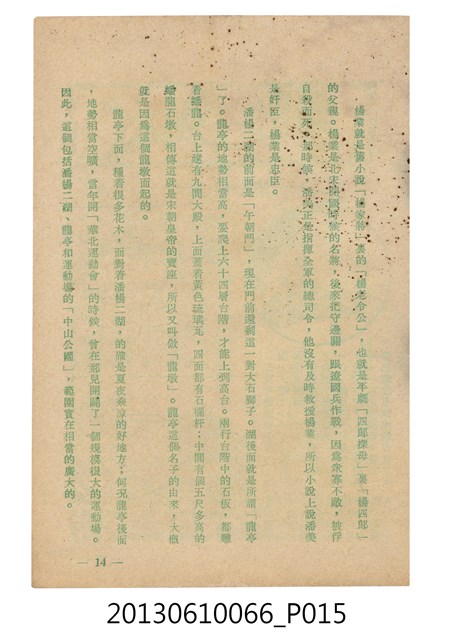 楊業就是舊小說「楊家將」裏的「楊老令公」,也就是平劇「四郎探母」裏「楊四郎」
的父親。楊業是北宋建國時候的名將,後來把守邊關,跟遼國兵作戰,因為衆寡不敵,被俘
自殺而死。那時候,潘美正是指揮全軍的總司令,他沒有及時救援楊業,所以小說上說潘美
是奸臣,楊業是忠臣。
潘楊二湖的前面是「午朝門」,現在門前還剩這一對大石獅子。湖後面就是所謂「龍亭
」了。龍亭的地勢相當高,要爬上六十四層台階,才能上到高台。兩行台階中的石板,都雕
着蟠龍。台上建有九間大殿,上面蓋着黃色琉璃瓦,四面都有石欄杆;中間有個五尺多高的
蟠龍石墩,相傳這就是宋朝皇帝的寶座,所以又叫做「龍墩」。龍亭這個名子的由來,大概
就是因為這個龍墩而起的。
龍亭下面,種着很多花木,面對着潘楊二湖,的確是夏夜乘涼的好地方;何況龍亭後面
,地勢相當空曠,當年開「華北運動會」的時候,曾在那兒開闢了一個規模很大的運動場。
因此,這個包括潘楊二湖、龍亭和運動場的「中山公園」,範圍實在相當的廣大的。
— 14 —
20130610066_P015